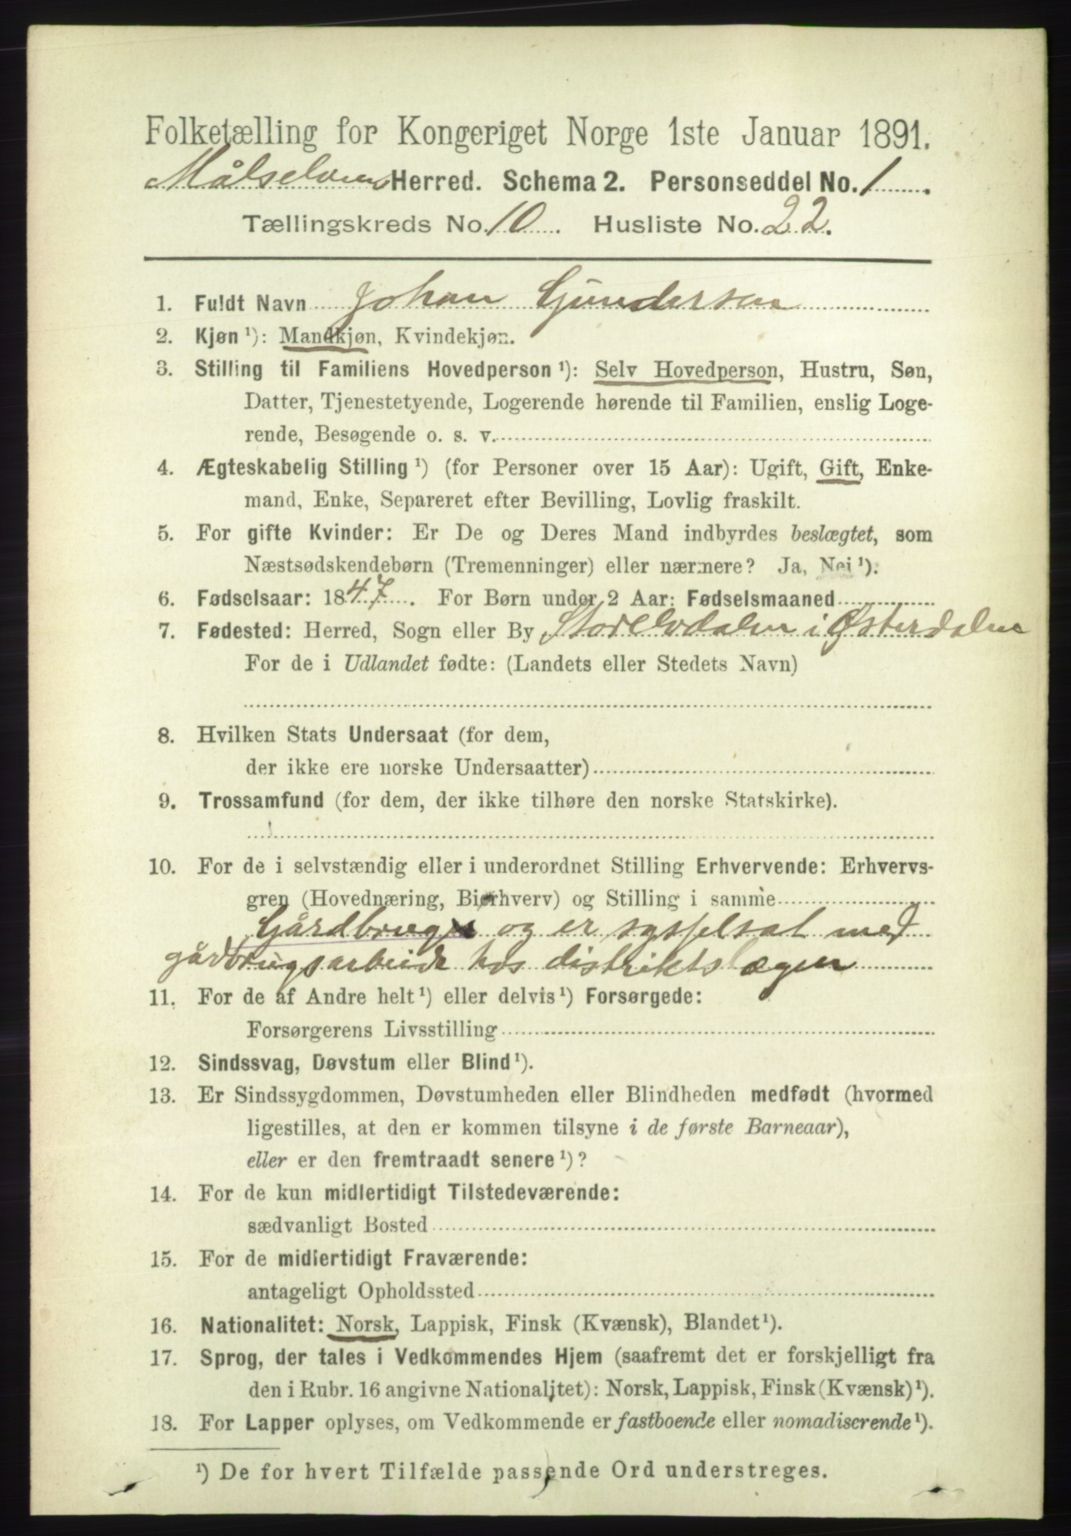 Folketælling for Kongeriget Norge 1ste Januar 1891.
Målselven Herred. Schema 2. Personseddel No. 1.
Tællingskreds No. 10. Husliste No. 22.
1. Fuldt Navn Johan Gundersen
2. Kjøn ¹): Mandkjøn, Kvindekjøn.
3. Stilling til Familiens Hovedperson ¹): Selv Hovedperson, Hustru, Søn,
Datter, Tjenestetyende, Logerende hørende til Familien, enslig Loge-
rende, Besøgende o. s. v.
4. Ægteskabelig Stilling ¹) (for Personer over 15 Aar): Ugift, Gift, Enke-
mand, Enke, Separeret efter Bevilling, Lovlig fraskilt.
5. For gifte Kvinder: Er De og Deres Mand indbyrdes beslægtet, som
Næstsødskendebørn (Tremenninger) eller nærmere? Ja, Nei ¹).
6. Fødselsaar: 1847. For Børn under 2 Aar: Fødselsmaaned
7. Fødested: Herred, Sogn eller By Storelvdalen i Østerdalen
For de i Udlandet fødte: (Landets eller Stedets Navn)
8. Hvilken Stats Undersaat (for dem,
der ikke ere norske Undersaatter)
9. Trossamfund (for dem, der ikke tilhøre den norske Statskirke).
10. For de i selvstændig eller i underordnet Stilling Erhvervende: Erhvervs-
gren (Hovednæring, Bierhverv) og Stilling i samme
Gårdbruger og er sysselsat med
gårdbrugsarbeide hos distriktslægen
11. For de af Andre helt ¹) eller delvis ¹) Forsørgede:
Forsørgerens Livsstilling
12. Sindssvag, Døvstum eller Blind ¹).
13. Er Sindssygdommen, Døvstumheden eller Blindheden medfødt (hvormed
ligestilles, at den er kommen tilsyne i de første Barneaar),
eller er den fremtraadt senere ¹)?
14. For de kun midlertidigt Tilstedeværende:
sædvanligt Bosted
15. For de midlertidigt Fraværende:
antageligt Opholdssted
16. Nationalitet: Norsk, Lappisk, Finsk (Kvænsk), Blandet ¹).
17. Sprog, der tales i Vedkommendes Hjem (saafremt det er forskjelligt fra
den i Rubr. 16 angivne Nationalitet): Norsk, Lappisk, Finsk (Kvænsk) ¹).
18. For Lapper oplyses, om Vedkommende er fastboende eller nomadiserende ¹).
¹) De for hvert Tilfælde passende Ord understreges.